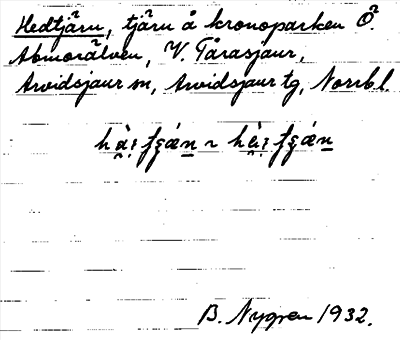 Hedtjärn, tjärn å kronoparken Ö.
Abmorälven, V. Tårasjaur,
Arvidsjaur sn, Arvidsjaur tg, Norrbl.
B. Nygren 1932.